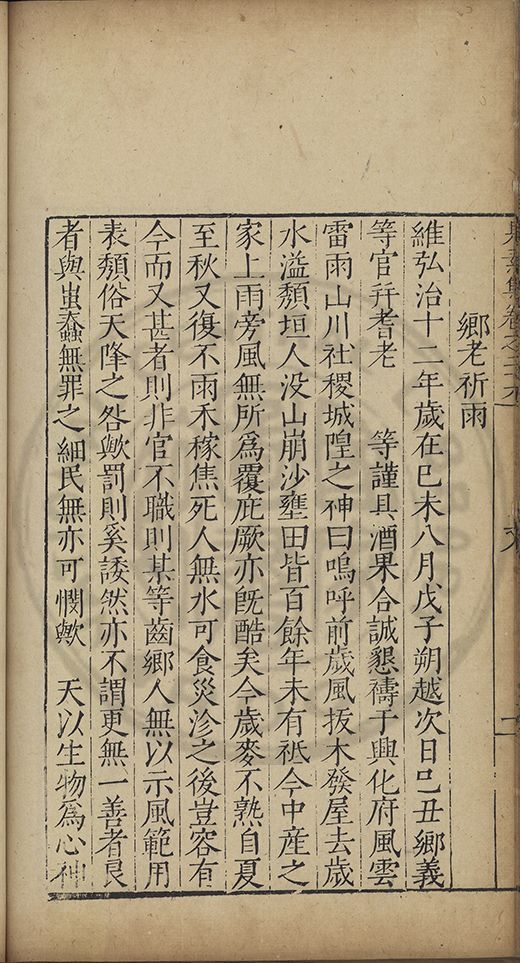 鄉老祈雨
維弘治十二年歲在巳未八月戊子朔越次日巳丑鄉義
等官并耆老　等謹具酒果合誠懇禱于興化府風雲
雷雨山川社稷城隍之神曰嗚呼前歲風拔木發屋去歲
水溢頽垣人没山崩沙壅田皆百餘年未有祗今中産之
家上雨旁風無所爲覆庇厥亦旣酷矣今歲麥不熟自夏
至秋又復不雨禾稼焦死人無水可食災沴之後豈容有
今而又甚者則非官不職則某等齒鄉人無以示風範用
表頽俗天降之咎歟罰則奚諉然亦不謂更無一善者良
者與蚩蠢無罪之細民無亦可憫歟　天以生物爲心神